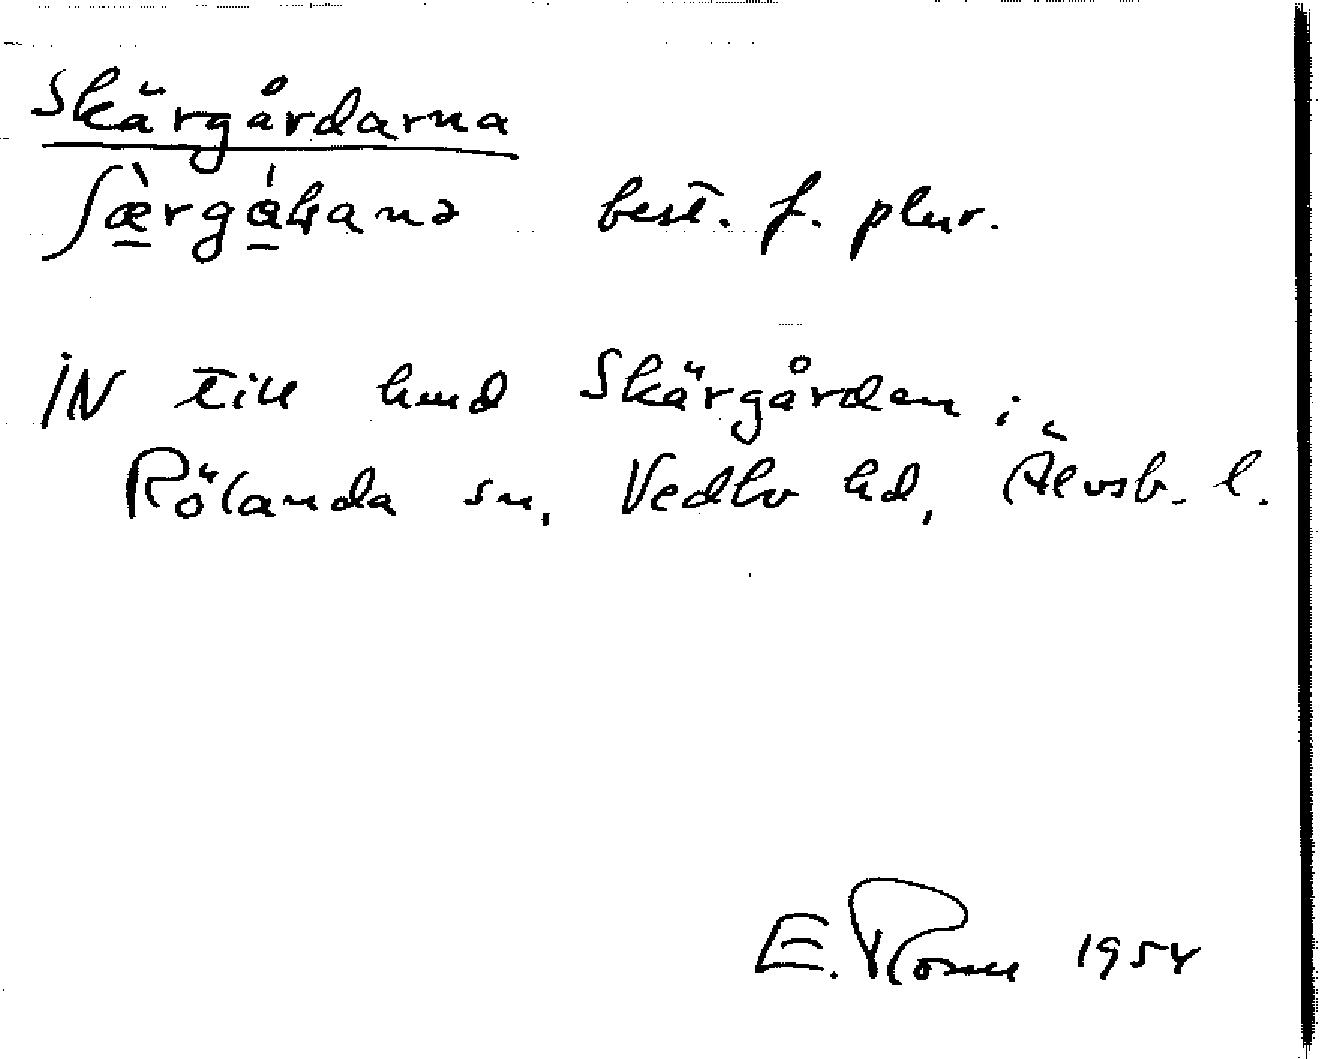 Skärgårdarna
best. f. plur.
IN till hmd Skärgården i
Rölanda sn, Vedbo hd, Älvsb. l.
E. Rosell 1954